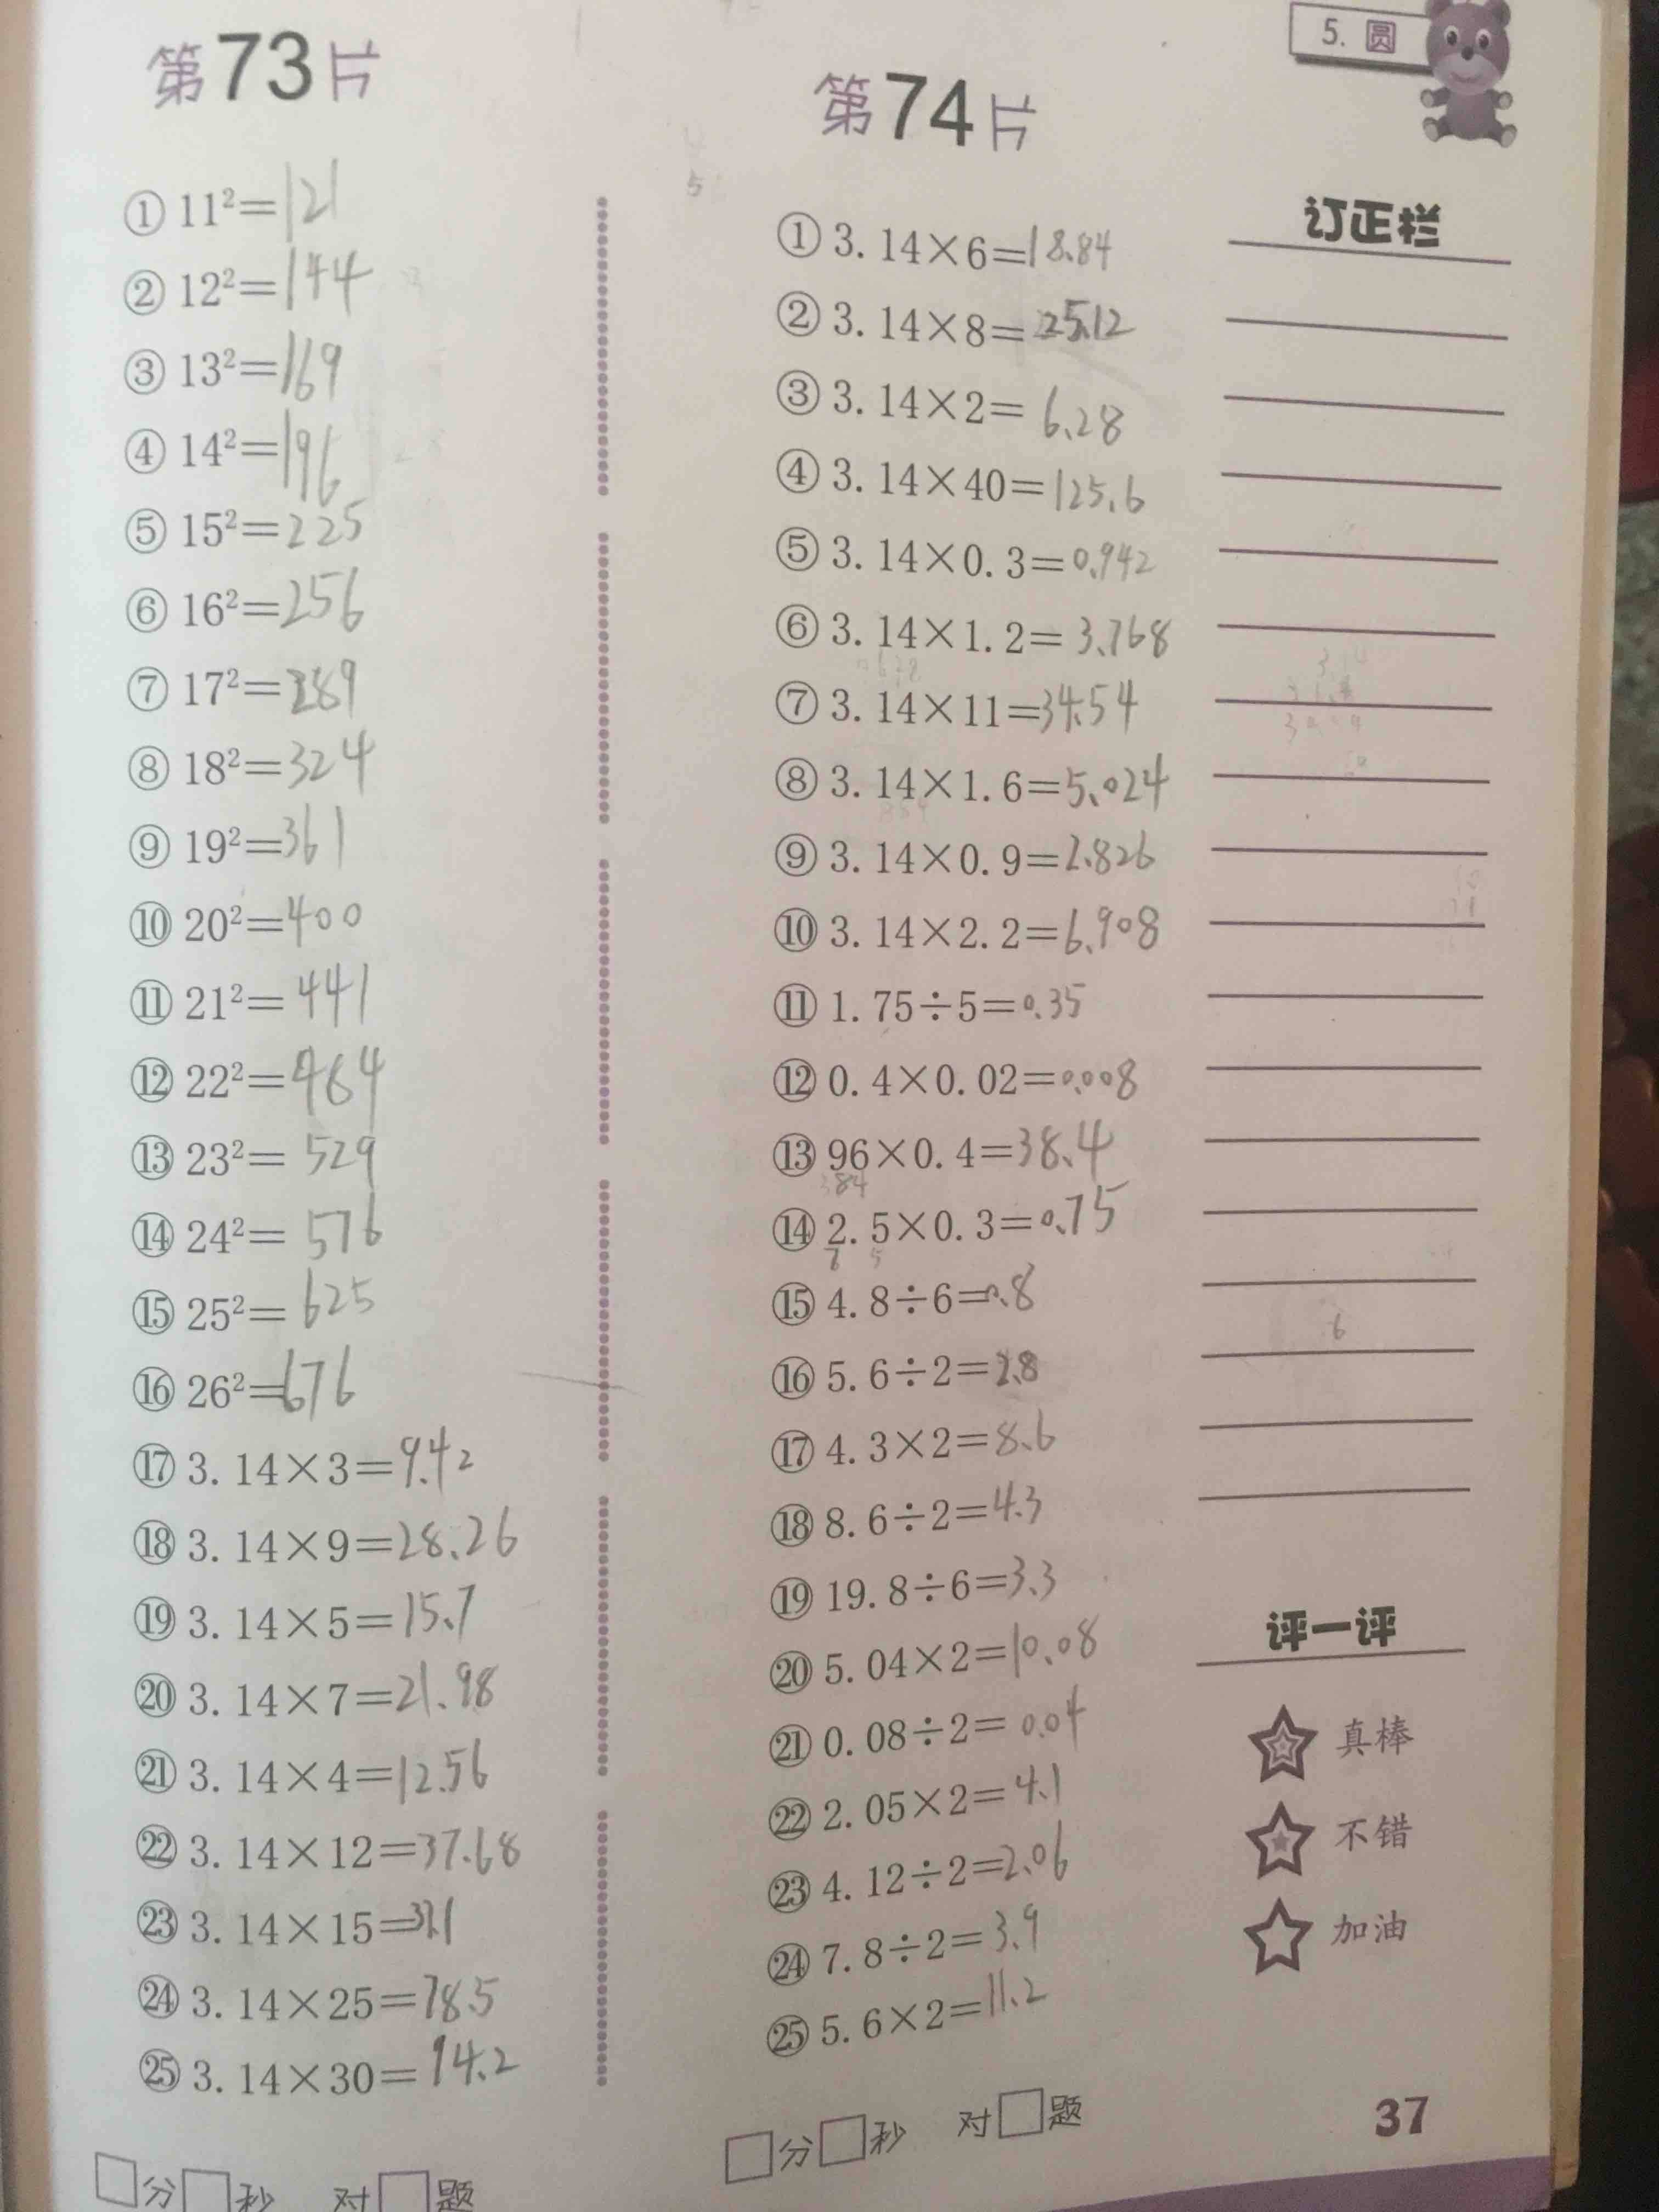 第73片
① 11²=121
② 12²=144
③ 13²=169
④ 14²=196
⑤ 15²=225
⑥ 16²=256
⑦ 17²=289
⑧ 18²=324
⑨ 19²=361
⑩ 20²=400
⑪ 21²=441
⑫ 22²=464
⑬ 23²=529
⑭ 24²=576
⑮ 25²=625
⑯ 26²=676
⑰ 3.14×3=9.42
⑱ 3.14×9=28.26
⑲ 3.14×5=15.7
⑳ 3.14×7=21.98
㉑ 3.14×4=12.56
㉒ 3.14×12=37.68
㉓ 3.14×15=
㉔ 3.14×25=78.5
㉕ 3.14×30=94.2
□分□秒 对□题
第74片
① 3.14×6=18.84
② 3.14×8=25.12
③ 3.14×2=6.28
④ 3.14×40=125.6
⑤ 3.14×0.3=0.942
⑥ 3.14×1.2=3.768
⑦ 3.14×11=34.54
⑧ 3.14×1.6=5.024
⑨ 3.14×0.9=2.826
⑩ 3.14×2.2=6.908
⑪ 1.75÷5=0.35
⑫ 0.4×0.02=0.008
⑬ 96×0.4=38.4
384
⑭ 2.5×0.3=0.75
⑮ 4.8÷6=0.8
⑯ 5.6÷2=2.8
⑰ 4.3×2=8.6
⑱ 8.6÷2=4.3
⑲ 19.8÷6=3.3
⑳ 5.04×2=10.08
㉑ 0.08÷2=0.04
㉒ 2.05×2=4.1
㉓ 4.12÷2=2.06
㉔ 7.8÷2=3.9
㉕ 5.6×2=11.2
□分□秒 对□题
5. 圆
订正栏
评一评
真棒
不错
加油
37